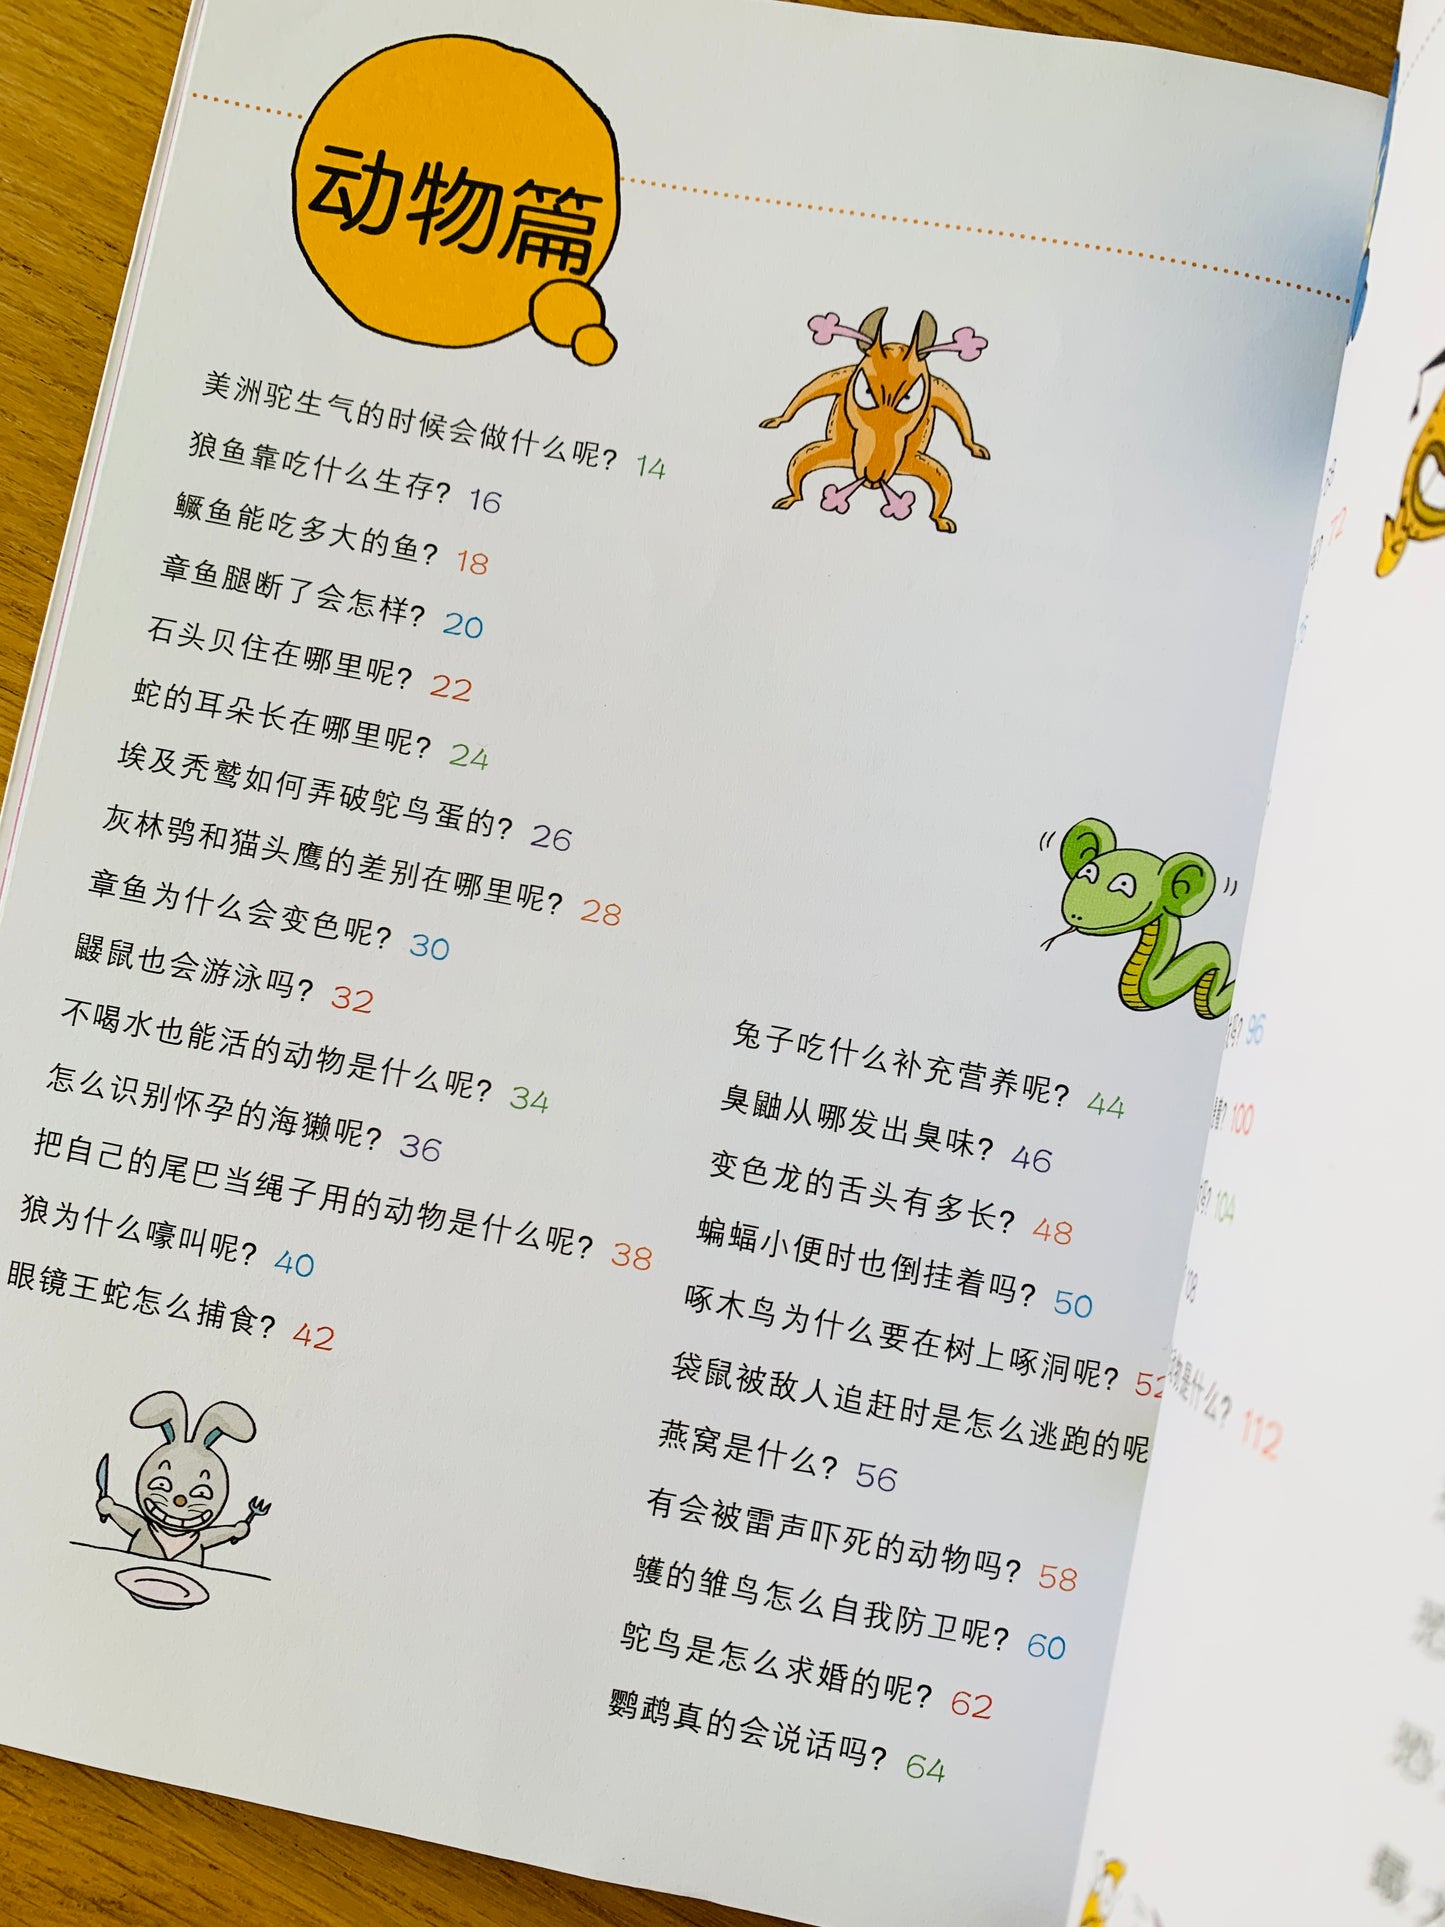 动物篇
美洲驼生气的时候会做什么呢? 14
狼鱼靠吃什么生存? 16
鳜鱼能吃多大的鱼? 18
章鱼腿断了会怎样? 20
石头贝住在哪里呢? 22
蛇的耳朵长在哪里呢? 24
埃及秃鹫如何弄破鸵鸟蛋的? 26
灰林鸮和猫头鹰的差别在哪里呢? 28
章鱼为什么会变色呢? 30
鼹鼠也会游泳吗? 32
不喝水也能活的动物是什么呢? 34
怎么识别怀孕的海獭呢? 36
把自己的尾巴当绳子用的动物是什么呢? 38
狼为什么嚎叫呢? 40
眼镜王蛇怎么捕食? 42
兔子吃什么补充营养呢? 44
臭鼬从哪发出臭味? 46
变色龙的舌头有多长? 48
蝙蝠小便时也倒挂着吗? 50
啄木鸟为什么要在树上啄洞呢? 52
袋鼠被敌人追赶时是怎么逃跑的呢
燕窝是什么? 56
有会被雷声吓死的动物吗? 58
鹱的雏鸟怎么自我防卫呢? 60
鸵鸟是怎么求婚的呢? 62
鹦鹉真的会说话吗? 64
72
96
100
104
108
物是什么? 112